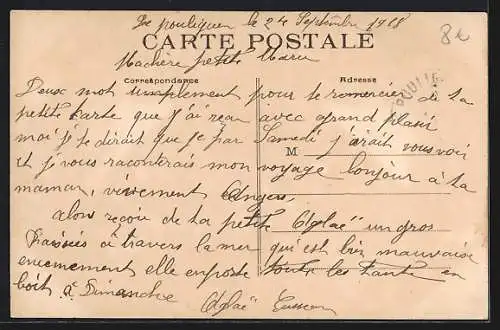 Le pouliguen le 24 Septembre 1918
CARTE POSTALE
Machère petite
Correspondance
Adresse
Deux mot simplement pour te remercier de ta
petite carte que j'ai reçu avec grand plaisir
moi je te dirait que je par Samedi j'irait vous voir
M
et je vous raconterais mon voyage bonjour à ta
maman, vivement Angers,
alor reçou de ta petite Aglaë un gros
à travers la mer qui est bien mauvaise
enormement elle en toute les tant en
à Dimanche
Aglaë